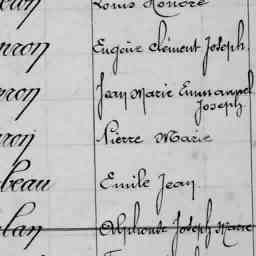 Louis Honoré
nron Eugène Clément Joseph.
nron Jean Marie Emmanuel
Joseph
Pierre Marie
beau Emile Jean.
lan Alphonse Joseph Marie